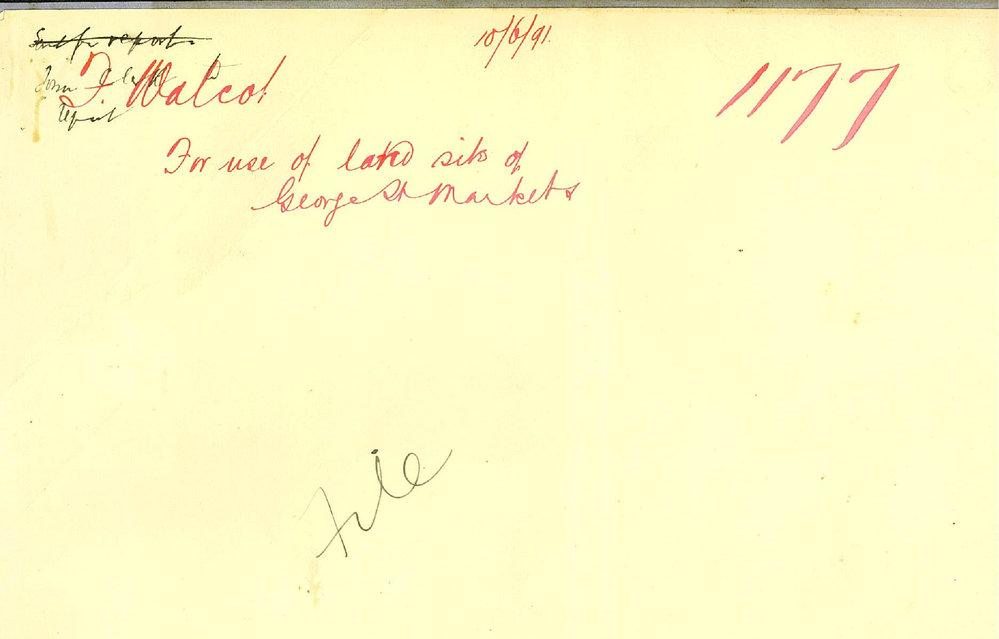 10/6/91
Send for report
Town Clerk to
report
F. Walcot
1177
For use of land site of
George St Markets
File